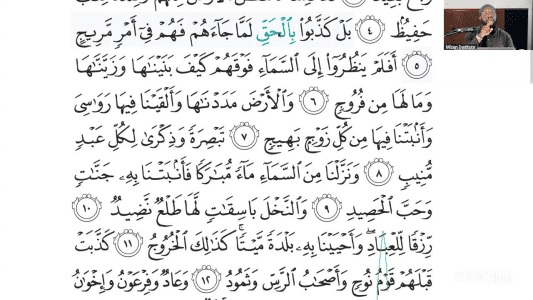 حَفِيظٌ ٤ بَلْ كَذَّبُوا۟ بِٱلْحَقِّ لَمَّا جَآءَهُمْ فَهُمْ فِىٓ أَمْرٍ مَّرِيجٍ
٥ أَفَلَمْ يَنظُرُوٓا۟ إِلَى ٱلسَّمَآءِ فَوْقَهُمْ كَيْفَ بَنَيْنَٰهَا وَزَيَّنَّٰهَا
وَمَا لَهَا مِن فُرُوجٍ ٦ وَٱلْأَرْضَ مَدَدْنَٰهَا وَأَلْقَيْنَا فِيهَا رَوَٰسِىَ
وَأَنۢبَتْنَا فِيهَا مِن كُلِّ زَوْجٍۭ بَهِيجٍ ٧ تَبْصِرَةً وَذِكْرَىٰ لِكُلِّ عَبْدٍ
مُّنِيبٍ ٨ وَنَزَّلْنَا مِنَ ٱلسَّمَآءِ مَآءً مُّبَٰرَكًا فَأَنۢبَتْنَا بِهِۦ جَنَّٰتٍ
وَحَبَّ ٱلْحَصِيدِ ٩ وَٱلنَّخْلَ بَاسِقَٰتٍ لَّهَا طَلْعٌ نَّضِيدٌ ١٠
رِّزْقًا لِّلْعِبَادِ ۖ وَأَحْيَيْنَا بِهِۦ بَلْدَةً مَّيْتًا ۚ كَذَٰلِكَ ٱلْخُرُوجُ ١١ كَذَّبَتْ
قَبْلَهُمْ قَوْمُ نُوحٍ وَأَصْحَٰبُ ٱلرَّسِّ وَثَمُودُ ١٢ وَعَادٌ وَفِرْعَوْنُ وَإِخْوَٰنُ
Mizan Institute